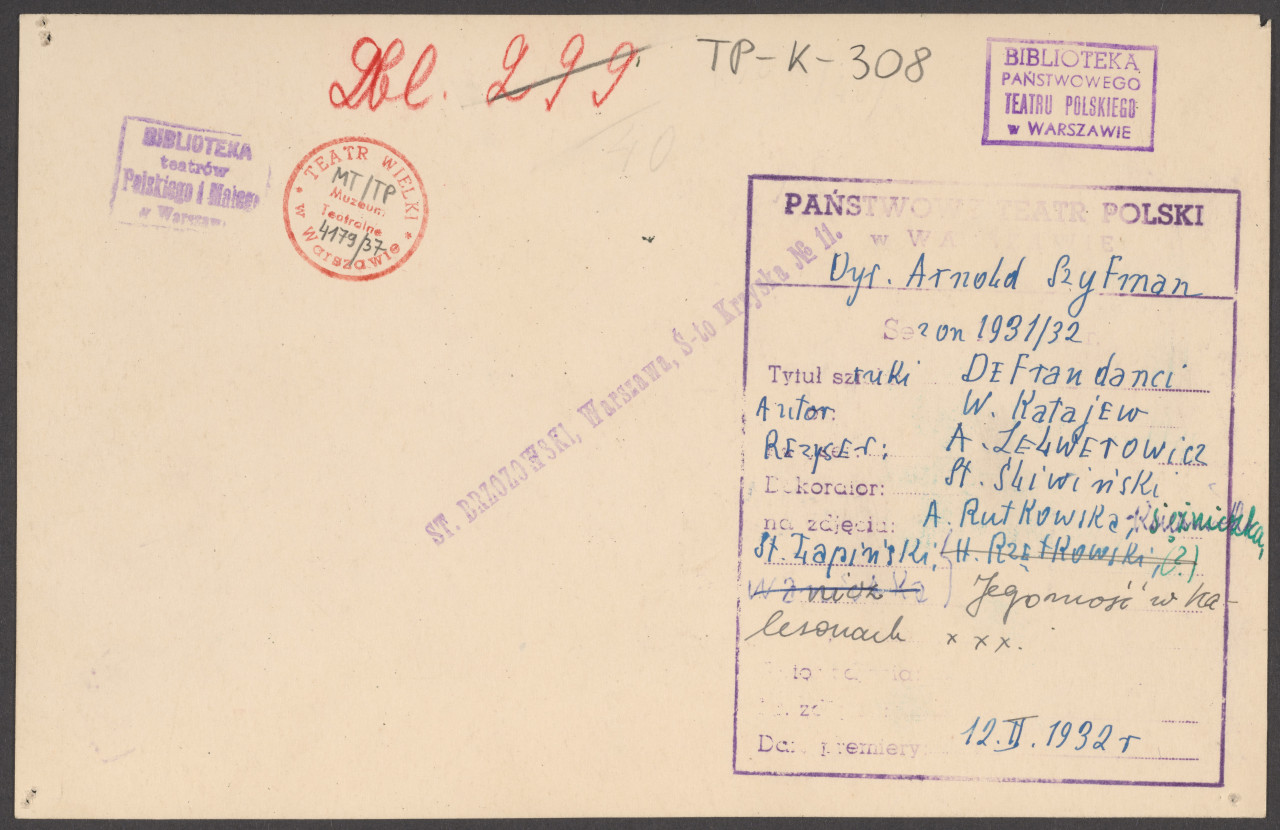 Dbl. 299. TP-K-308
BIBLIOTEKA
PAŃSTWOWEGO
TEATRU POLSKIEGO
w WARSZAWIE
BIBLIOTEKA
teatrów
Polskiego i Małego
w Warszaw
* TEATR WIELKI * w Warszawie
MT/TP
Muzeum
Teatralne
4179/37
40
ST. BRZOZOWSKI, Warszawa, Ś-to Krzyska № 11.
PAŃSTWOWY TEATR POLSKI
w WARSZAWIE
Dyr. Arnold Szyfman
Sezon 1931/32
Tytuł sztuki DEFraudanci
Autor: W. Katajew
REżysER: A. ZELWEROWicz
Dekorator: St. Śliwiński
na zdjęciu: A. Rutkowska, Księżniczka,
St. Łapiński, H. Rzętkowski, (?)
Woźniczka Jegomość w ka-
lesonach x x x.
Data premiery: 12.II.1932 r